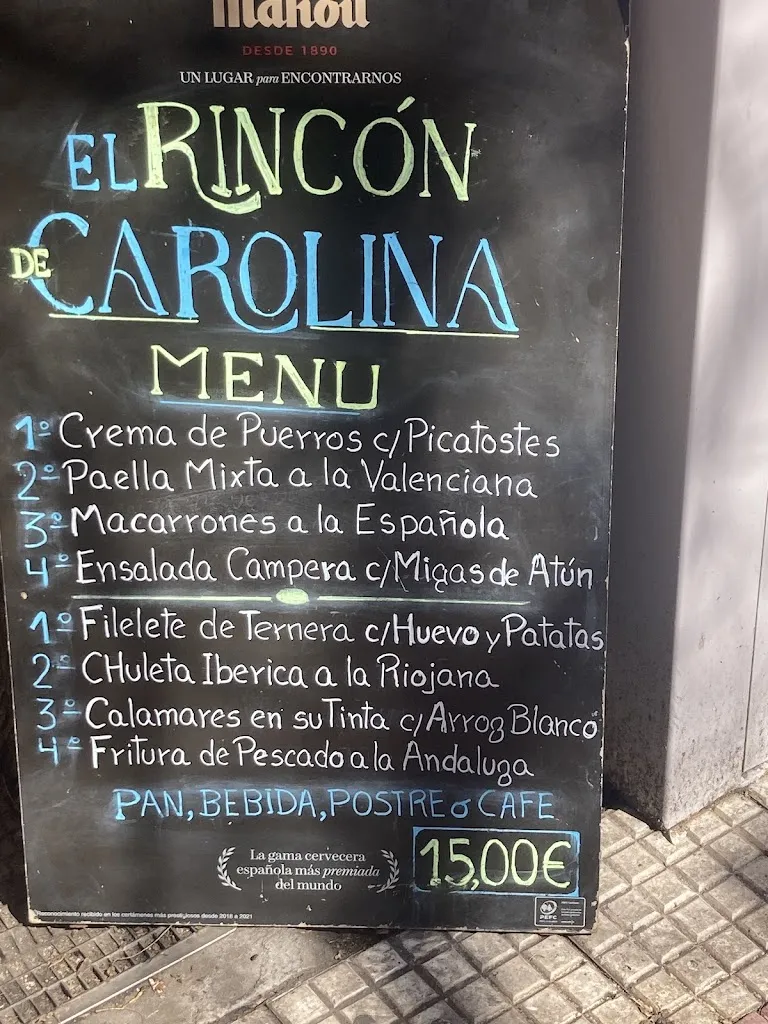 Mahou
DESDE 1890
UN LUGAR para ENCONTRARNOS
EL RINCÓN
DE CAROLINA
MENU
1º Crema de Puerros c/Picatostes
2º Paella Mixta a la Valenciana
3º Macarrones a la Española
4º Ensalada Campera c/Migas de Atún
1º Filelete de Ternera c/Huevo y Patatas
2º CHuleta Iberica a la Riojana
3º Calamares en su Tinta c/Arroz Blanco
4º Fritura de Pescado a la Andaluza
PAN, BEBIDA, POSTRE o CAFE
15,00€
La gama cervecera
española más premiada
del mundo
Reconocimiento recibido en los certámenes más prestigiosos desde 2018 a 2021
PEFC